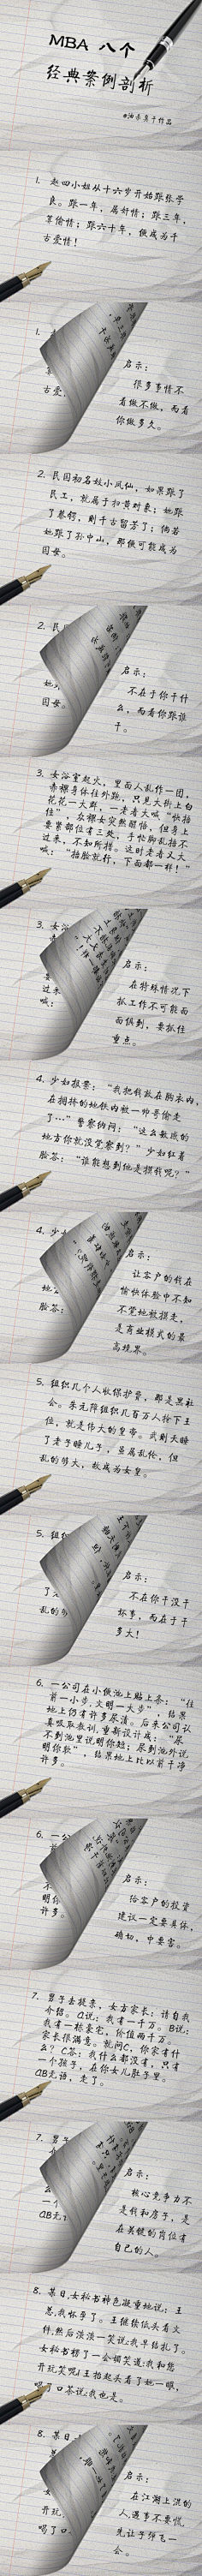 MBA 八个
经典案例剖析
1. 赵四小姐从十六岁开始跟张学
良。跟一年，属奸情；跟三年，
算偷情；跟六十年，便成为千
古爱情！
1.
古爱
启示：
很多事情不
看做不做，而看
你做多久。
2. 民国初名妓小凤仙，如果跟了
民工，就属于扫黄对象；她跟
了蔡锷，则千古留芳了；倘若
她跟了孙中山，那便可能成为
国母。
2. 民
国母。
启示：
不在于你干什
么，而看你跟谁
干。
3. 女浴室起火，里面人乱作一团，
赤裸身体往外跑，只见大街上白
花花一大群，一老者大喊“快捂
住”，众裸女突然醒悟，但身上
要紧部位有三处，手忙脚乱捂不
过来，不知所措。这时老者又大
喊：“捂脸就行，下面都一样！”
3. 女浴
过来
喊：
启示：
在特殊情况下
抓工作不可能面
面俱到，要抓住
重点。
4. 少妇报案：“我把钱放在胸衣内，
在拥挤的地铁内被一帅哥偷走
了…”警察纳闷：“这么敏感的
地方你就没觉察到？”少妇红着
脸答：“谁能想到他是摸钱呢？”
4. 少
脸答：
启示：
让客户的钱在
愉快体验中不知
不觉地被摸走，
是商业模式的最
高境界。
5. 组织几个人收保护费，那是黑社
会。朱元璋组织几百万人抢下王
位，就是伟大的皇帝。武则天睡
了老子睡儿子，虽属乱伦，但
乱的够大，故成为女皇。
5. 组织
乱的够
启示：
不在你干没干
坏事，而在于干
多大！
6. 一公司在小便池上贴上条：“往
前一小步，文明一大步”，结果
地上仍有许多尿渍。后来公司认
真吸取教训，重新设计成：“尿
不到池里说明你短；尿到池外说
明你软”，结果地上比以前干净
许多。
6. 一公
明你
许多。
启示：
给客户的投资
建议一定要具体，
确切，中要害。
7. 男子去提亲，女方家长：请自我
介绍。A说：我有一千万。B说：
我有一栋豪宅，价值两千万。
家长很满意。就问C，你家有什
么？C答：我什么都没有，只有
一个孩子，在你女儿肚子里。
AB无语，走了。
7. 男子
AB无
启示：
核心竞争力不
是钱和房子，是
在关键的岗位有
自己的人。
8. 某日，女秘书神色凝重地说：王
总，我怀孕了。王继续低头看文
件，然后淡淡一笑说：我早结扎了。
女秘书楞了一会媚笑道：我和您
开玩笑呢！王抬起头看了她一眼，
喝了口茶说：我也是。
8. 某日
开玩
喝了口
启示：
在江湖上混的
人，遇事不要慌，
先让子弹飞一
会。